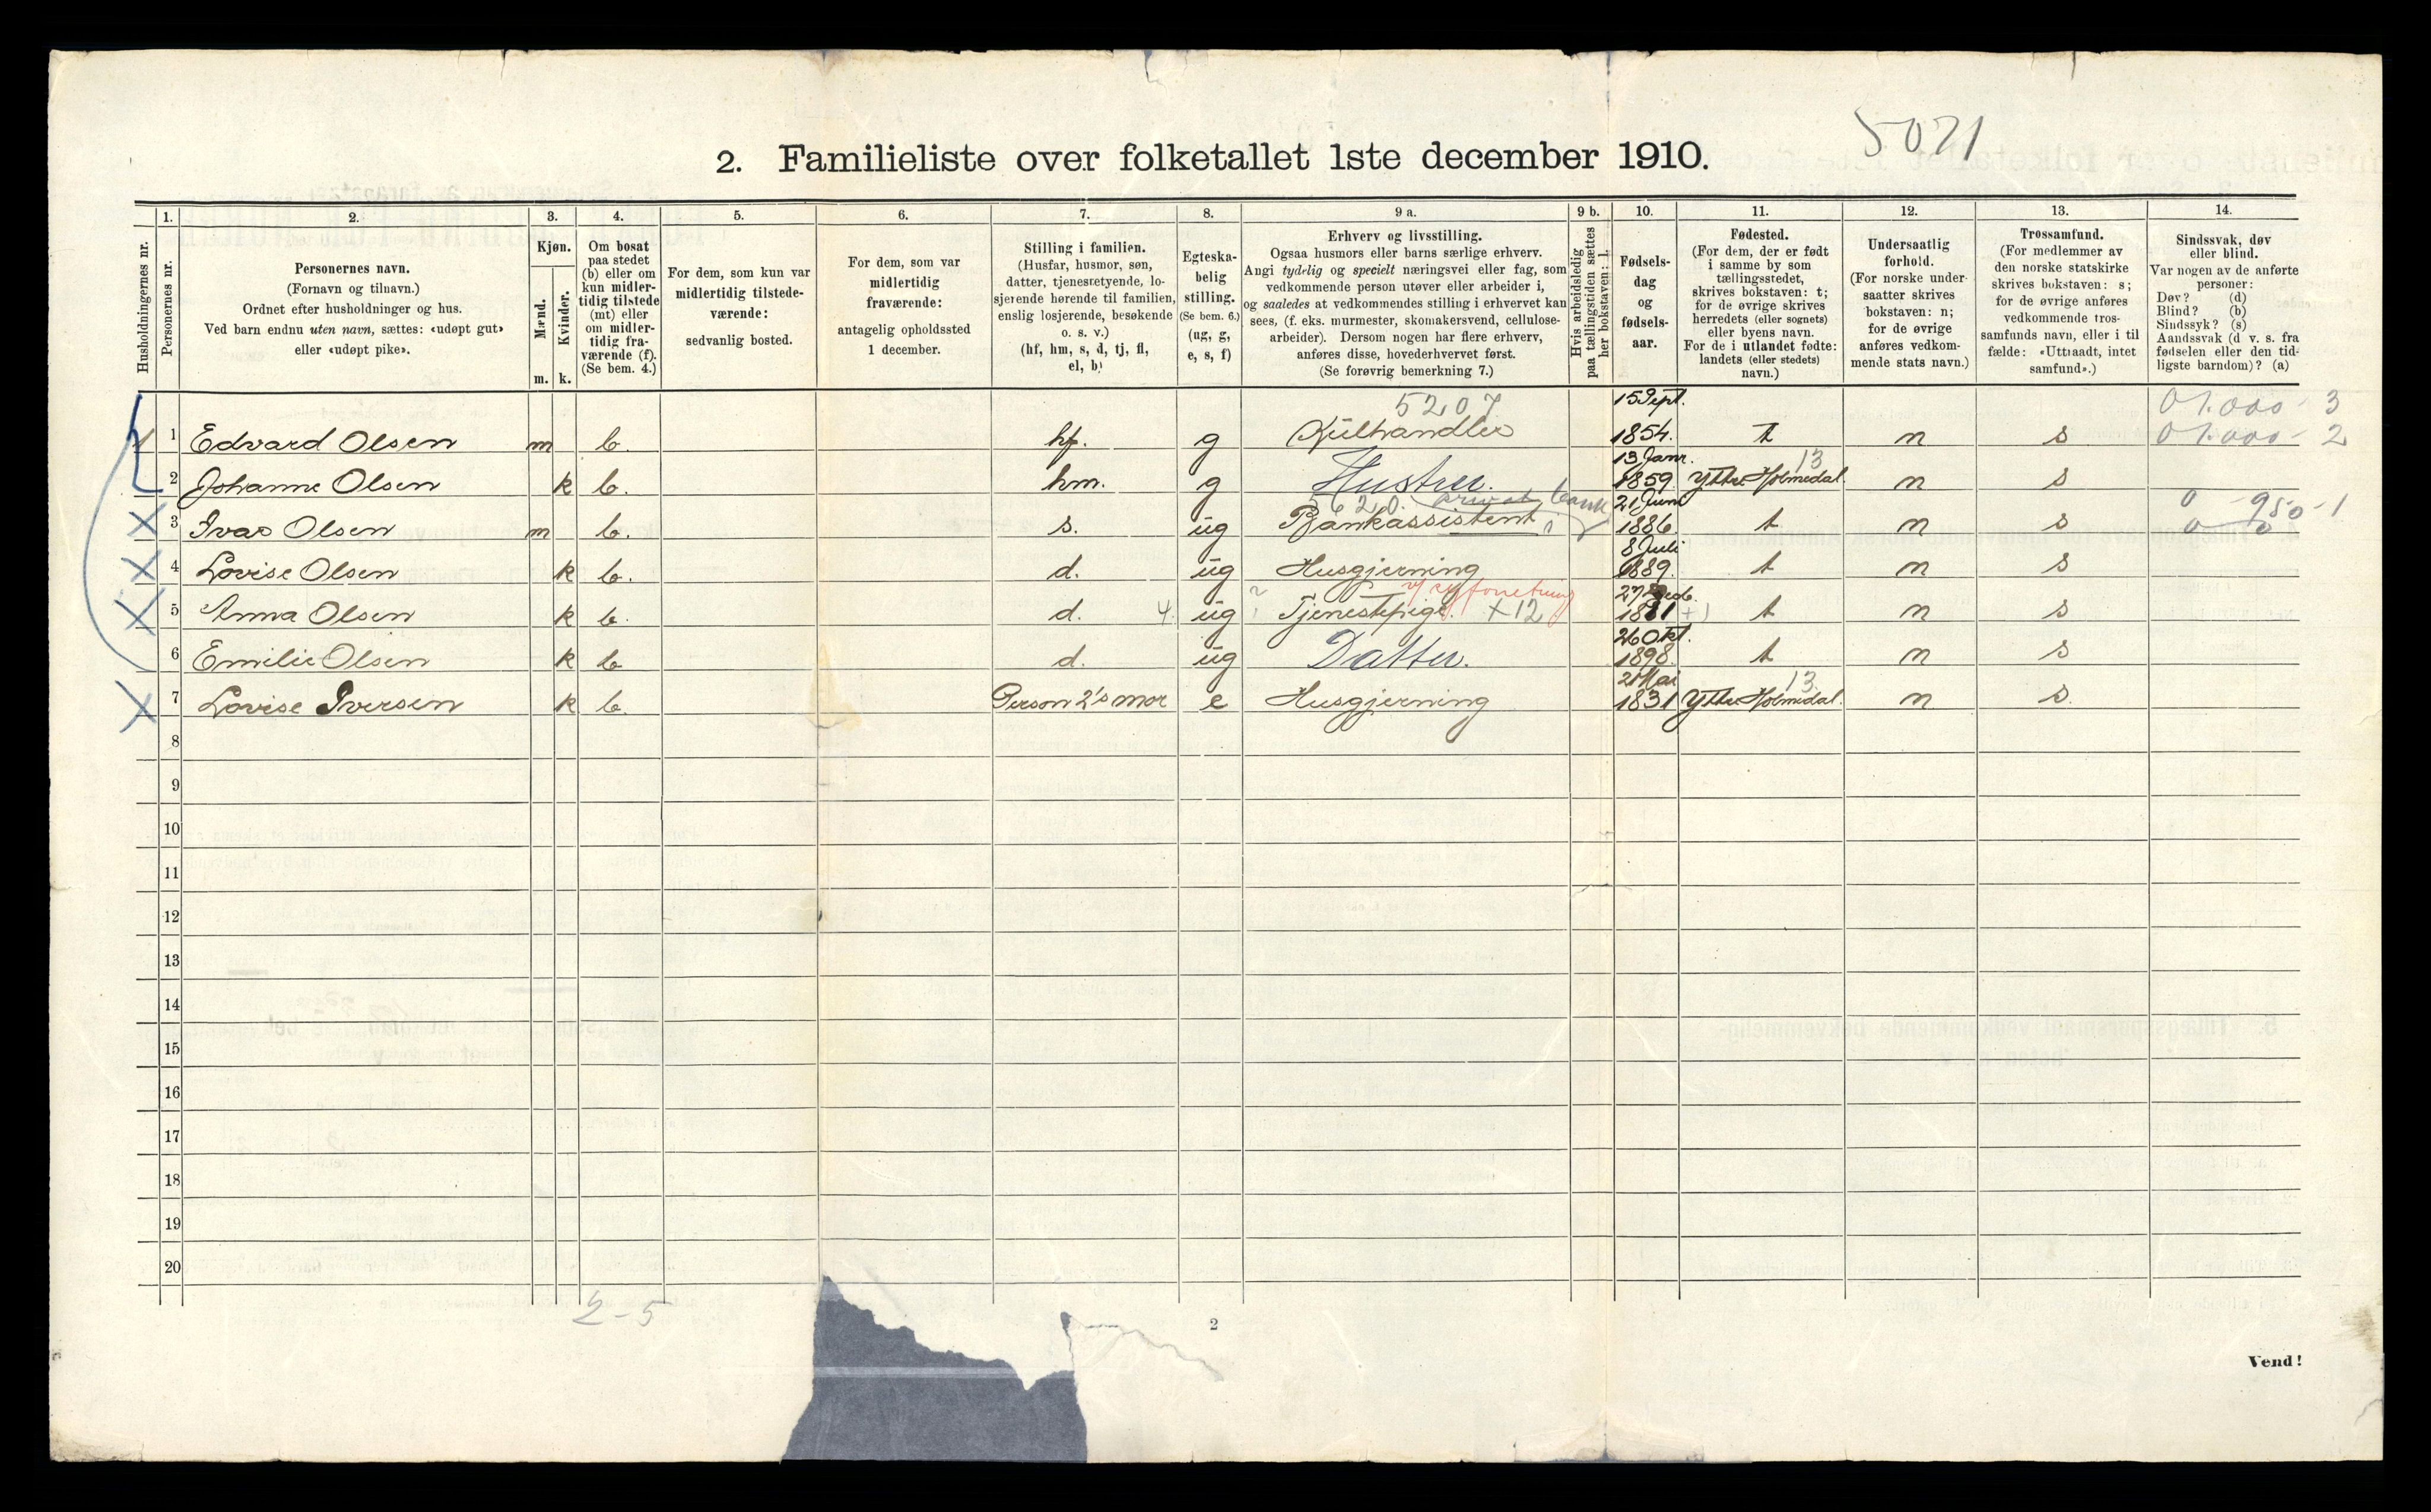 5021
2. Familieliste over folketallet 1ste december 1910.
1. 2. 3. 4. 5. 6. 7. 8. 9 a. 9 b. 10. 11. 12. 13. 14.
Husholdningernes nr.
Personernes nr.
Personernes navn.
(Fornavn og tilnavn.)
Ordnet efter husholdninger og hus.
Ved barn endnu uten navn, sættes: «udøpt gut»
eller «udøpt pike».
Kjøn.
Mænd.
Kvinder.
m. k.
Om bosat
paa stedet
(b) eller om
kun midler-
tidig tilstede
(mt) eller
om midler-
tidig fra-
værende (f).
(Se bem. 4.)
For dem, som kun var
midlertidig tilstede-
værende:
sedvanlig bosted.
For dem, som var
midlertidig
fraværende:
antagelig opholdssted
1 december.
Stilling i familien.
(Husfar, husmor, søn,
datter, tjenestetyende, lo-
sjerende hørende til familien,
enslig losjerende, besøkende
o. s. v.)
(hf, hm, s, d, tj, fl,
el, b)
Egteska-
belig
stilling.
(Se bem. 6.)
(ug, g,
e, s, f)
Erhverv og livsstilling.
Ogsaa husmors eller barns særlige erhverv.
Angi tydelig og specielt næringsvei eller fag, som
vedkommende person utøver eller arbeider i,
og saaledes at vedkommendes stilling i erhvervet kan
sees, (f. eks. murmester, skomakersvend, cellulose-
arbeider). Dersom nogen har flere erhverv,
anføres disse, hovederhvervet først.
(Se forøvrig bemerkning 7.)
Hvis arbeidsledig
paa tællingstiden sættes
her bokstaven: l.
Fødsels-
dag
og
fødsels-
aar.
Fødested.
(For dem, der er født
i samme by som
tællingsstedet,
skrives bokstaven: t;
for de øvrige skrives
herredets (eller sognets)
eller byens navn.
For de i utlandet fødte:
landets (eller stedets)
navn.)
Undersaatlig
forhold.
(For norske under-
saatter skrives
bokstaven: n;
for de øvrige
anføres vedkom-
mende stats navn.)
Trossamfund.
(For medlemmer av
den norske statskirke
skrives bokstaven: s;
for de øvrige anføres
vedkommende tros-
samfunds navn, eller i til-
fælde: «Uttraadt, intet
samfund».)
Sindssvak, døv
eller blind.
Var nogen av de anførte
personer:
Døv? (d)
Blind? (b)
Sindssyk? (s)
Aandssvak (d v. s. fra
fødselen eller den tid-
ligste barndom)? (a)
5207 15 Sept. 01.000 - 3
1 Edvard Olsen m b. hf. g Kulhandler 1854. t n s 01.000 - 2
13 Janr. 13
2 Johanne Olsen k b. hm. g Hustru. 1859. Ytre Holmedal. n s
620. privat bank 21 Juni 0 - 950 - 1
3 Ivar Olsen m b. s. ug Bankassistent 1886. t n s 0 0
8 Juli
4 Lovise Olsen k b. d. ug Husgjerning 1889. t n s
5 Anna Olsen k b. d. 4. ug ? Tjenestepige. +12 +1 t n s
26 Okt.
6 Emilie Olsen k b d. ug Datter. 1898. t n s
2 Mai 13
7 Lovise Iversen k b. Person 2's mor e Husgjerning 1831 Ytre Holmedal. n s.
8
9
10
11
12
13
14
15
16
17
18
19
20
2 - 5
2
Vend!